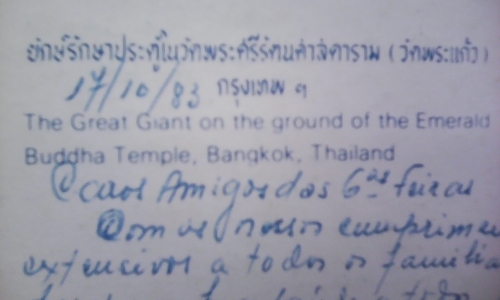 ยักษ์รักษาประตูในวัดพระศรีรัตนศาสดาราม (วัดพระแก้ว)
17/10/83 กรุงเทพ ฯ
The Great Giant on the ground of the Emerald
Buddha Temple, Bangkok, Thailand
Caros Amigos das 6as feiras
Com os nossos cumprimen
extensivos a todos os familia